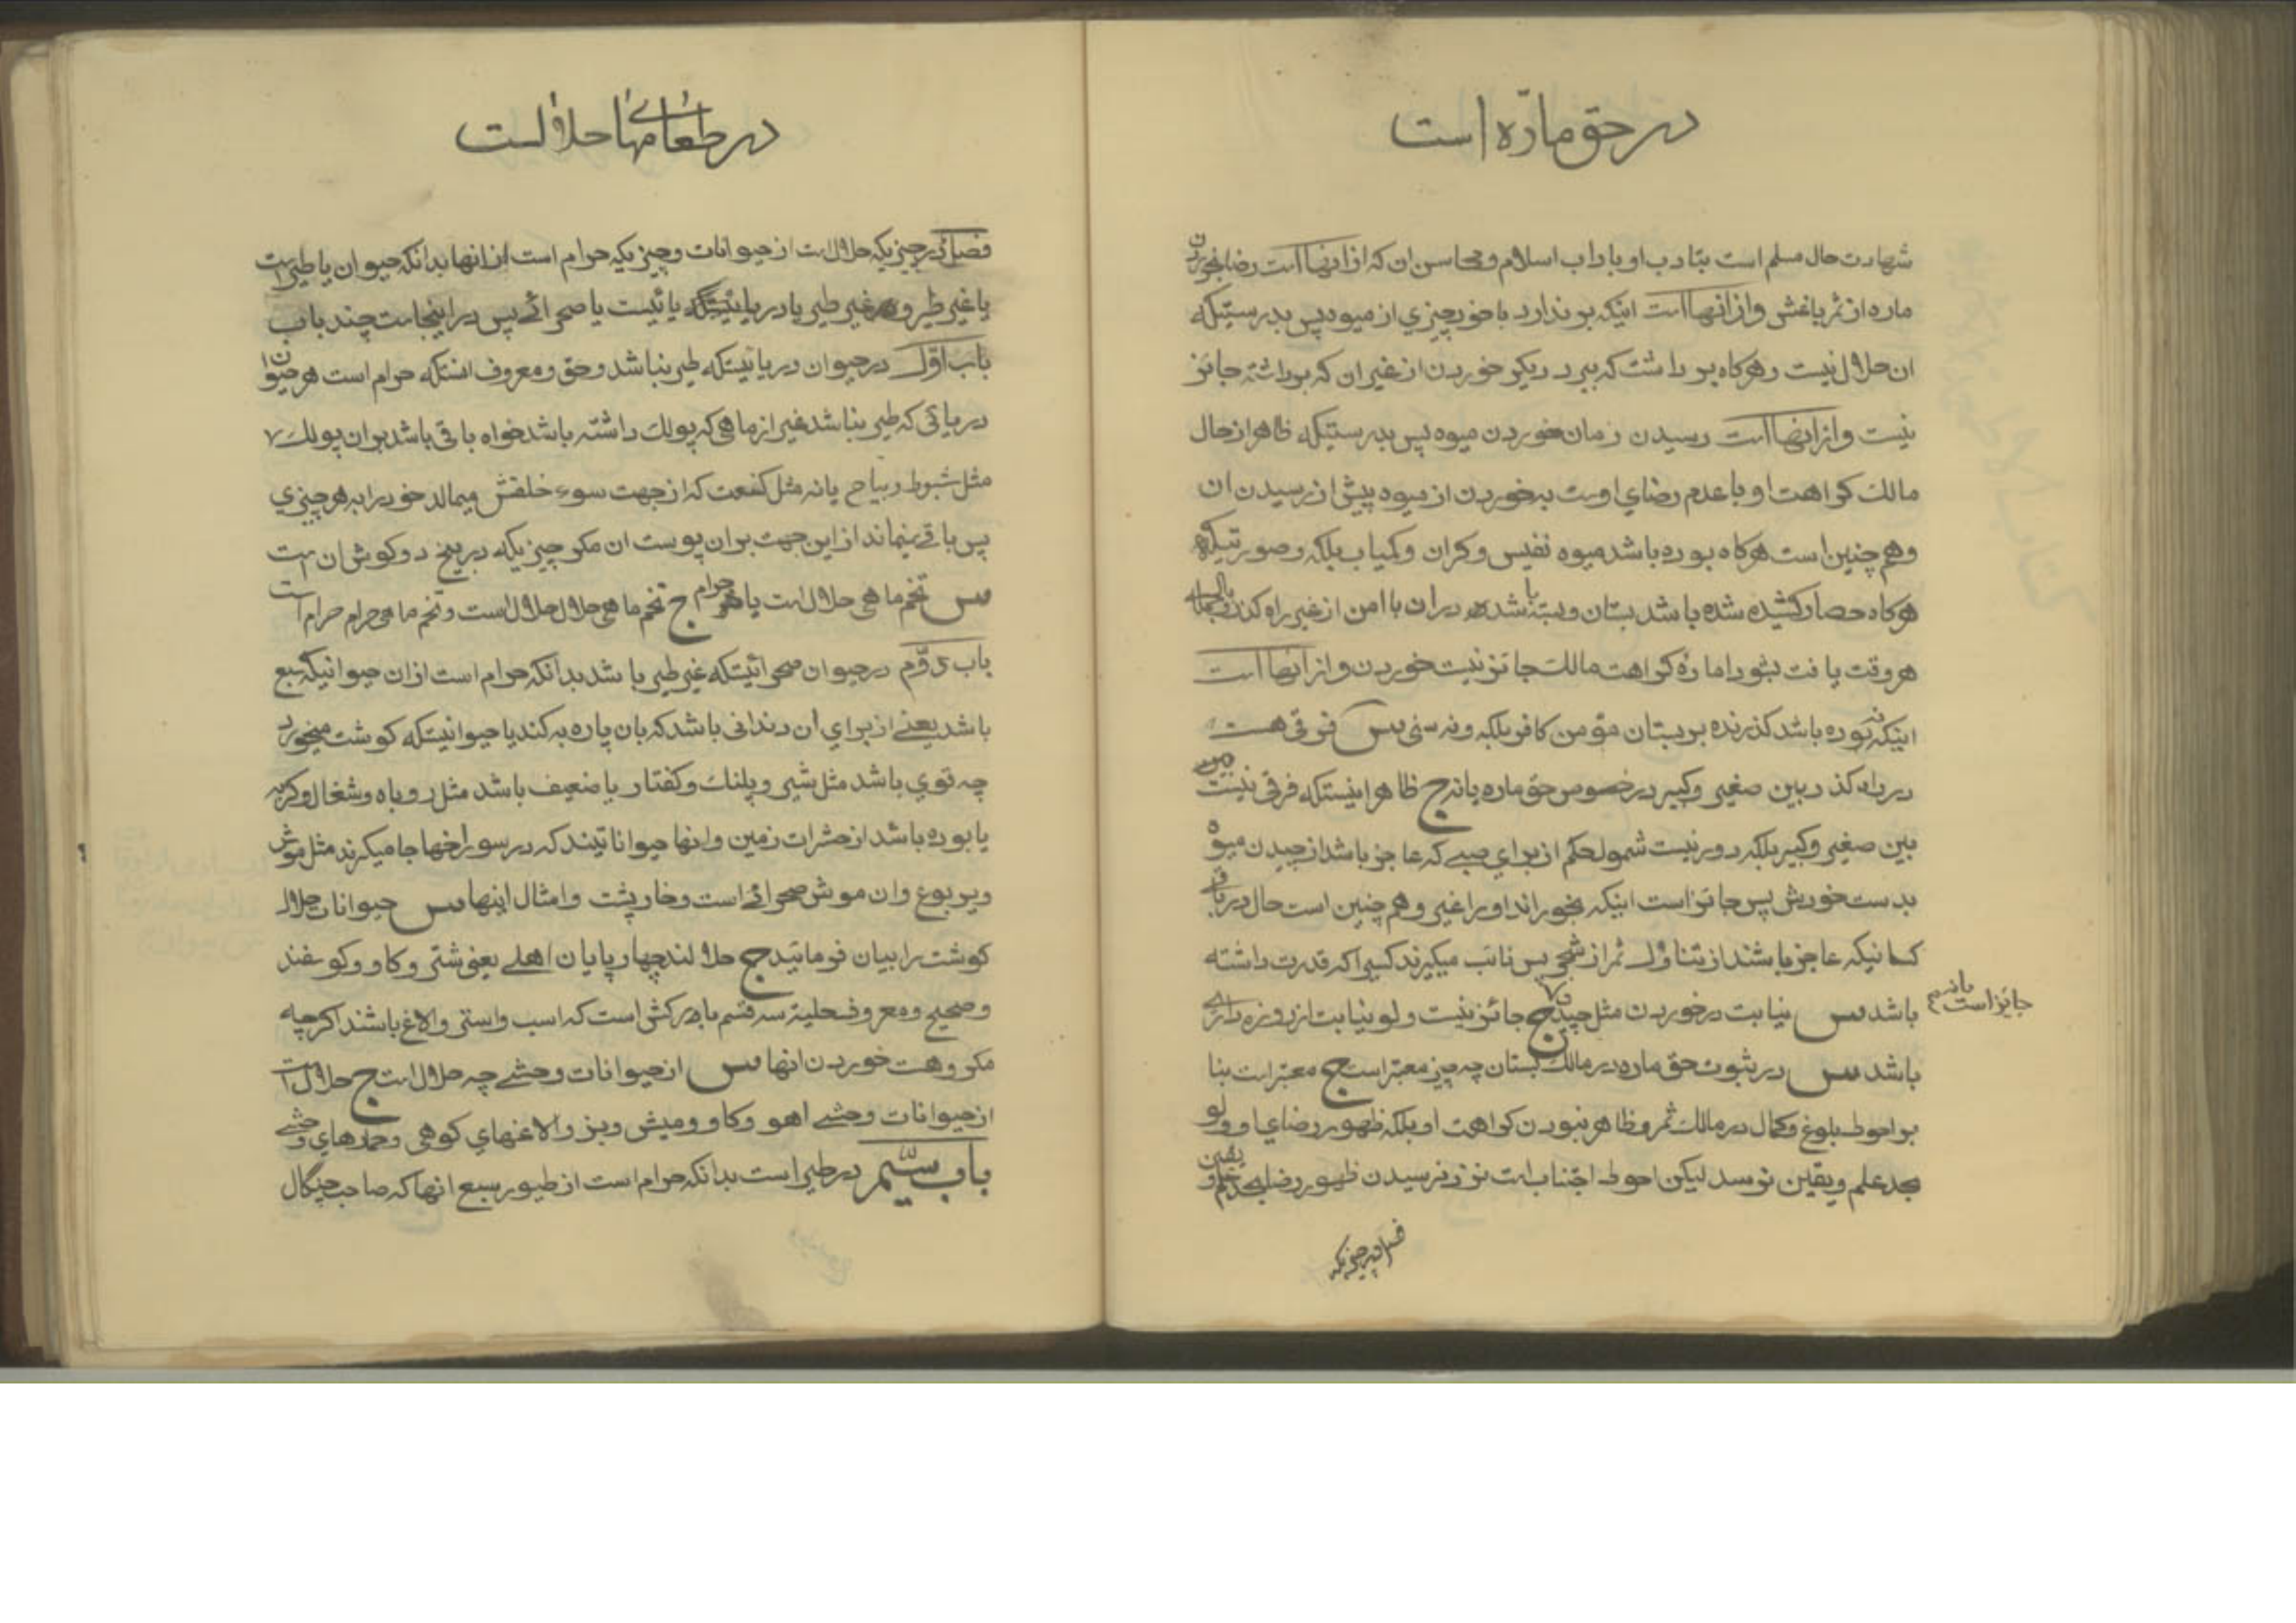 در حق مارّه است
شهادت حال مسلم است بتادب او باداب اسلام و محاسن ان که از انهااست رضا بخوردن
ماره از ثمر باغش و از انهااست اینکه بر ندارد با خود چیزی از میوه پس بدرستیکه
ان حلال نیست و هرکاه بر داشت که ببرد دیکر خوردن از غیر ان که برداشته جائز
نیست و از انهااست رسیدن زمان خوردن میوه پس بدرستیکه ظاهر از حال
مالک کراهت او با عدم رضای اوست بخوردن از میوه پیش از رسیدن ان
و هم چنین است هرکاه بوده باشد میوه نفیس و کران و کمیاب بلکه و صورتیکه
هرکاه حصار کشیده شده باشد بستان و بسته باشد در ان با امن از غیر راه کذر
هر وقت یافت بشود اماره کراهت مالک جائز نیست خوردن و از انهااست
اینکه نبوده باشد کذرنده بر بستان مؤمن کافر بلکه و نه سنی س فرقی هست
در راه کذر بین صغیر و کبیر در خصوص حق ماره یا نه ج ظاهر اینستکه فرقی نیست
بین صغیر و کبیر بلکه دور نیست شمول حکم از برای صبی که عاجز باشد از چیدن میوه
بدست خودش پس جائز است اینکه بخوراند او را غیر و هم چنین است حال در باقی
کسانیکه عاجز باشند از تناول ثمر از شجر پس نائب میکیرند کسیرا که قدرت داشته
باشد س نیابت در خوردن مثل چیدن جائز است یا نه ج جائز نیست و لو نیابت از روزه داری
باشد س در ثبوت حق ماره در مالک بستان چه چیز معتبر است ج معتبر است بنا
بر احوط بلوغ و کمال در مالک ثمر و ظاهر نبودن کراهت او بلکه ظهور رضای او و لو
بحد علم و یقین نرسد لیکن احوط اجتناب است نزد نرسیدن ظهور رضا بحد علم و یقین
فصل در چیزیکه
در طعامهای حلال است
فصل در چیزیکه حلال است از حیوانات و چیزیکه حرام است از انها بدانکه حیوان یا طیر است
یا غیر طیر و غیر طیر یا دریائیست یا صحرائی پس در اینجاست چند باب
باب اوّل در حیوان دریائیستکه طیر نباشد و حق و معروف انستکه حرام است هر حیوان
دریائی که طیر نباشد غیر از ماهی که پولک داشته باشد خواه باقی باشد بر ان پولک
مثل شبوط و بیاح یا نه مثل کنعت که از جهت سوء خلقش میمالد خود را به هر چیزی
پس باقی نمیماند از این جهت بر ان پوست ان مکر چیزیکه در بیخ دو کوش ان است
س تخم ماهی حلال است یا حرام ج تخم ماهی حلال حلال است و تخم ماهی حرام حرام است
باب دوّم در حیوان صحرائیستکه غیر طیر باشد بدانکه حرام است از ان حیوانیکه سبع
باشد یعنی از برای ان دندانی باشد که بان پاره بکند یا حیوانیستکه کوشت میخورد
چه قوی باشد مثل شیر و پلنک و کفتار یا ضعیف باشد مثل روباه و شغال و کربه
یا بوده باشد از حشرات زمین و انها حیواناتیند که در سوراخها جا میکیرند مثل موش
و یربوع و ان موش صحرائی است و خار پشت و امثال اینها س حیوانات حلال
کوشت را بیان فرمائید ج حلالند چهار پایان اهلی یعنی شتر و کاو و کوسفند
و صحیح و معروف حلیة سه قسم بارکش است که اسب و استر و الاغ باشند اکرچه
مکروهست خوردن انها س از حیوانات وحشی چه حلال است ج حلال است
از حیوانات وحشی اهو و کاو و میش و بز و الاغهای کوهی و حمارهای وحشی
باب سیّم در طیر است بدانکه حرام است از طیور سبع انها که صاحب چنکال